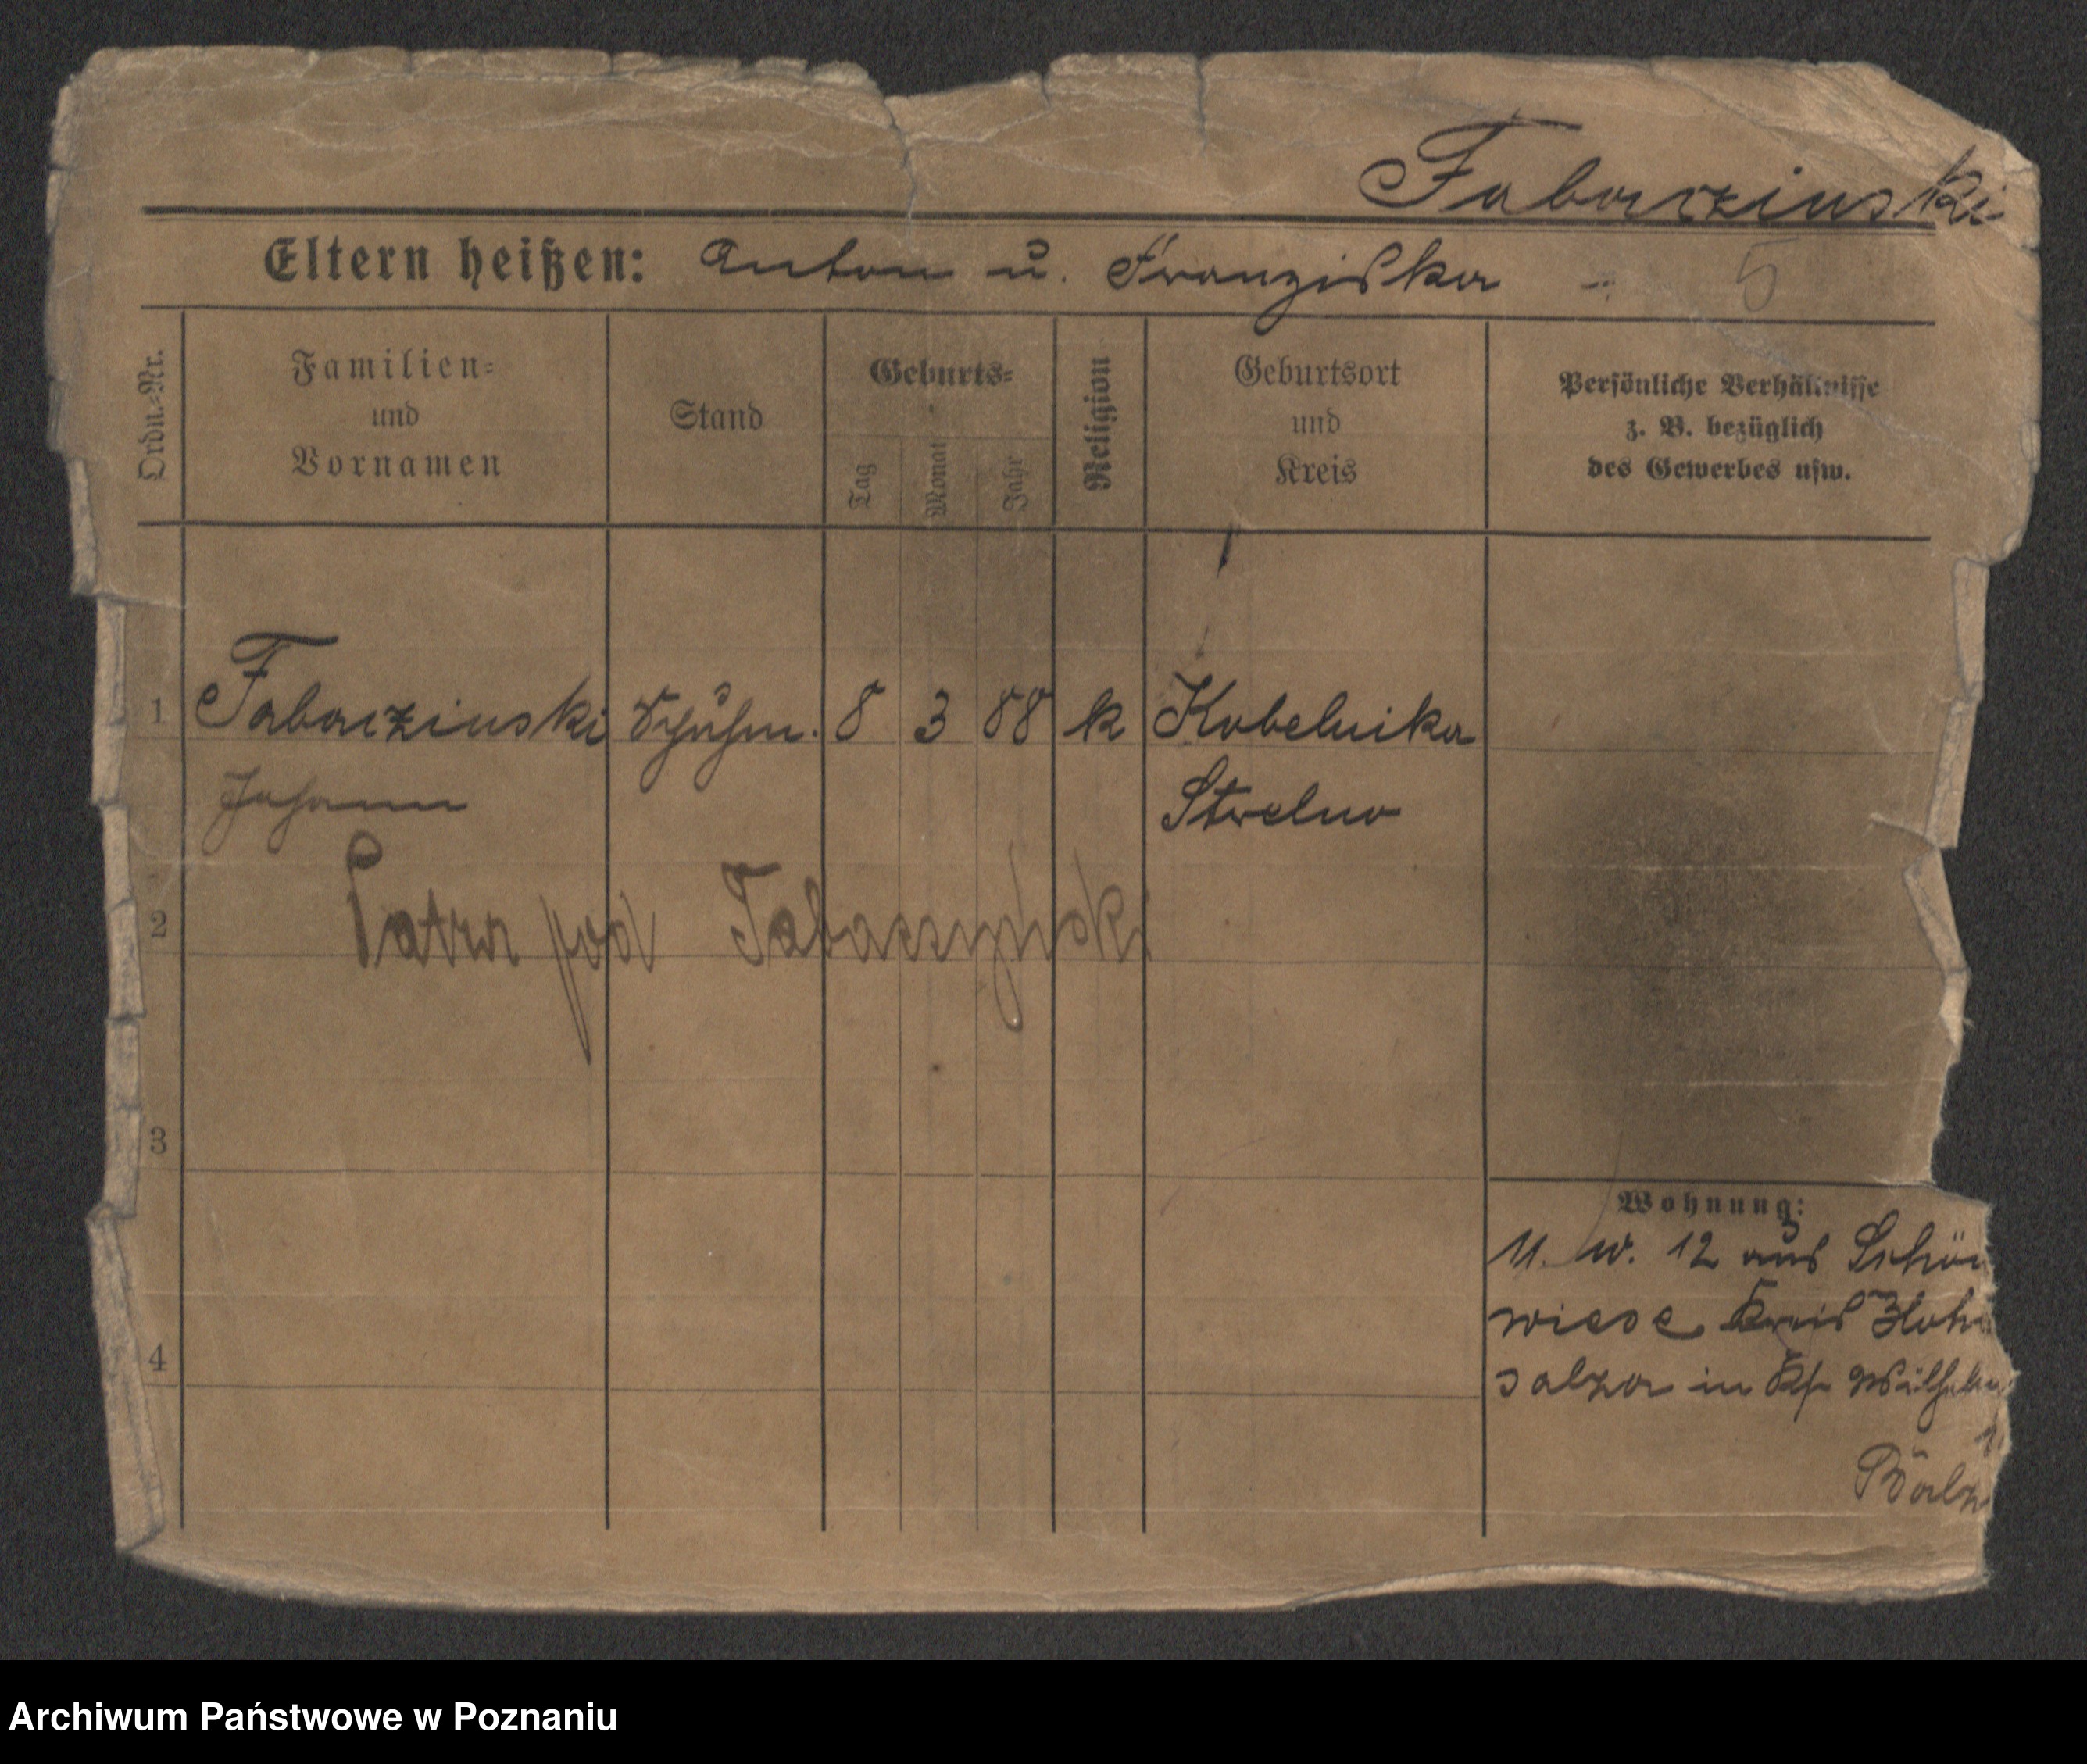 Tabaczinski
Eltern heißen: Anton u. Franziska - 5
Ordn.-Nr.
Familien-
und
Vornamen
Stand
Geburts-
Tag
Monat
Jahr
Religion
Geburtsort
und
Kreis
Persönliche Verhältnisse
z. B. bezüglich
des Gewerbes usw.
1 Tabaczinski Schuhm. 8 3 88 k Kobelnika
Johann Strelno
2 Patrz pod Tabaczyński
3
4
Wohnung:
11. 10. 12 aus Schön
wiese Kreis Hohe
salza in